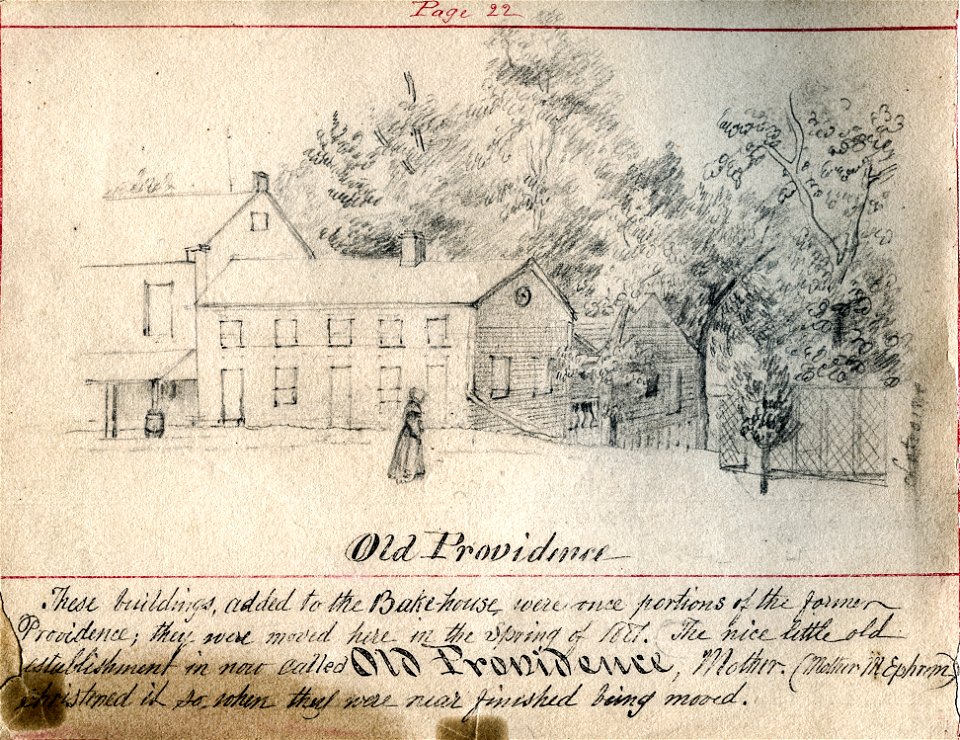 Page 22
Old Providence
These buildings, added to the Bakehouse were once portions of the former
Providence; they were moved here in the Spring of 1871. The nice little old
establishment in now called Old Providence, Mother. (Mother M Ephrem)
christened it so, when they were near finished being moved.